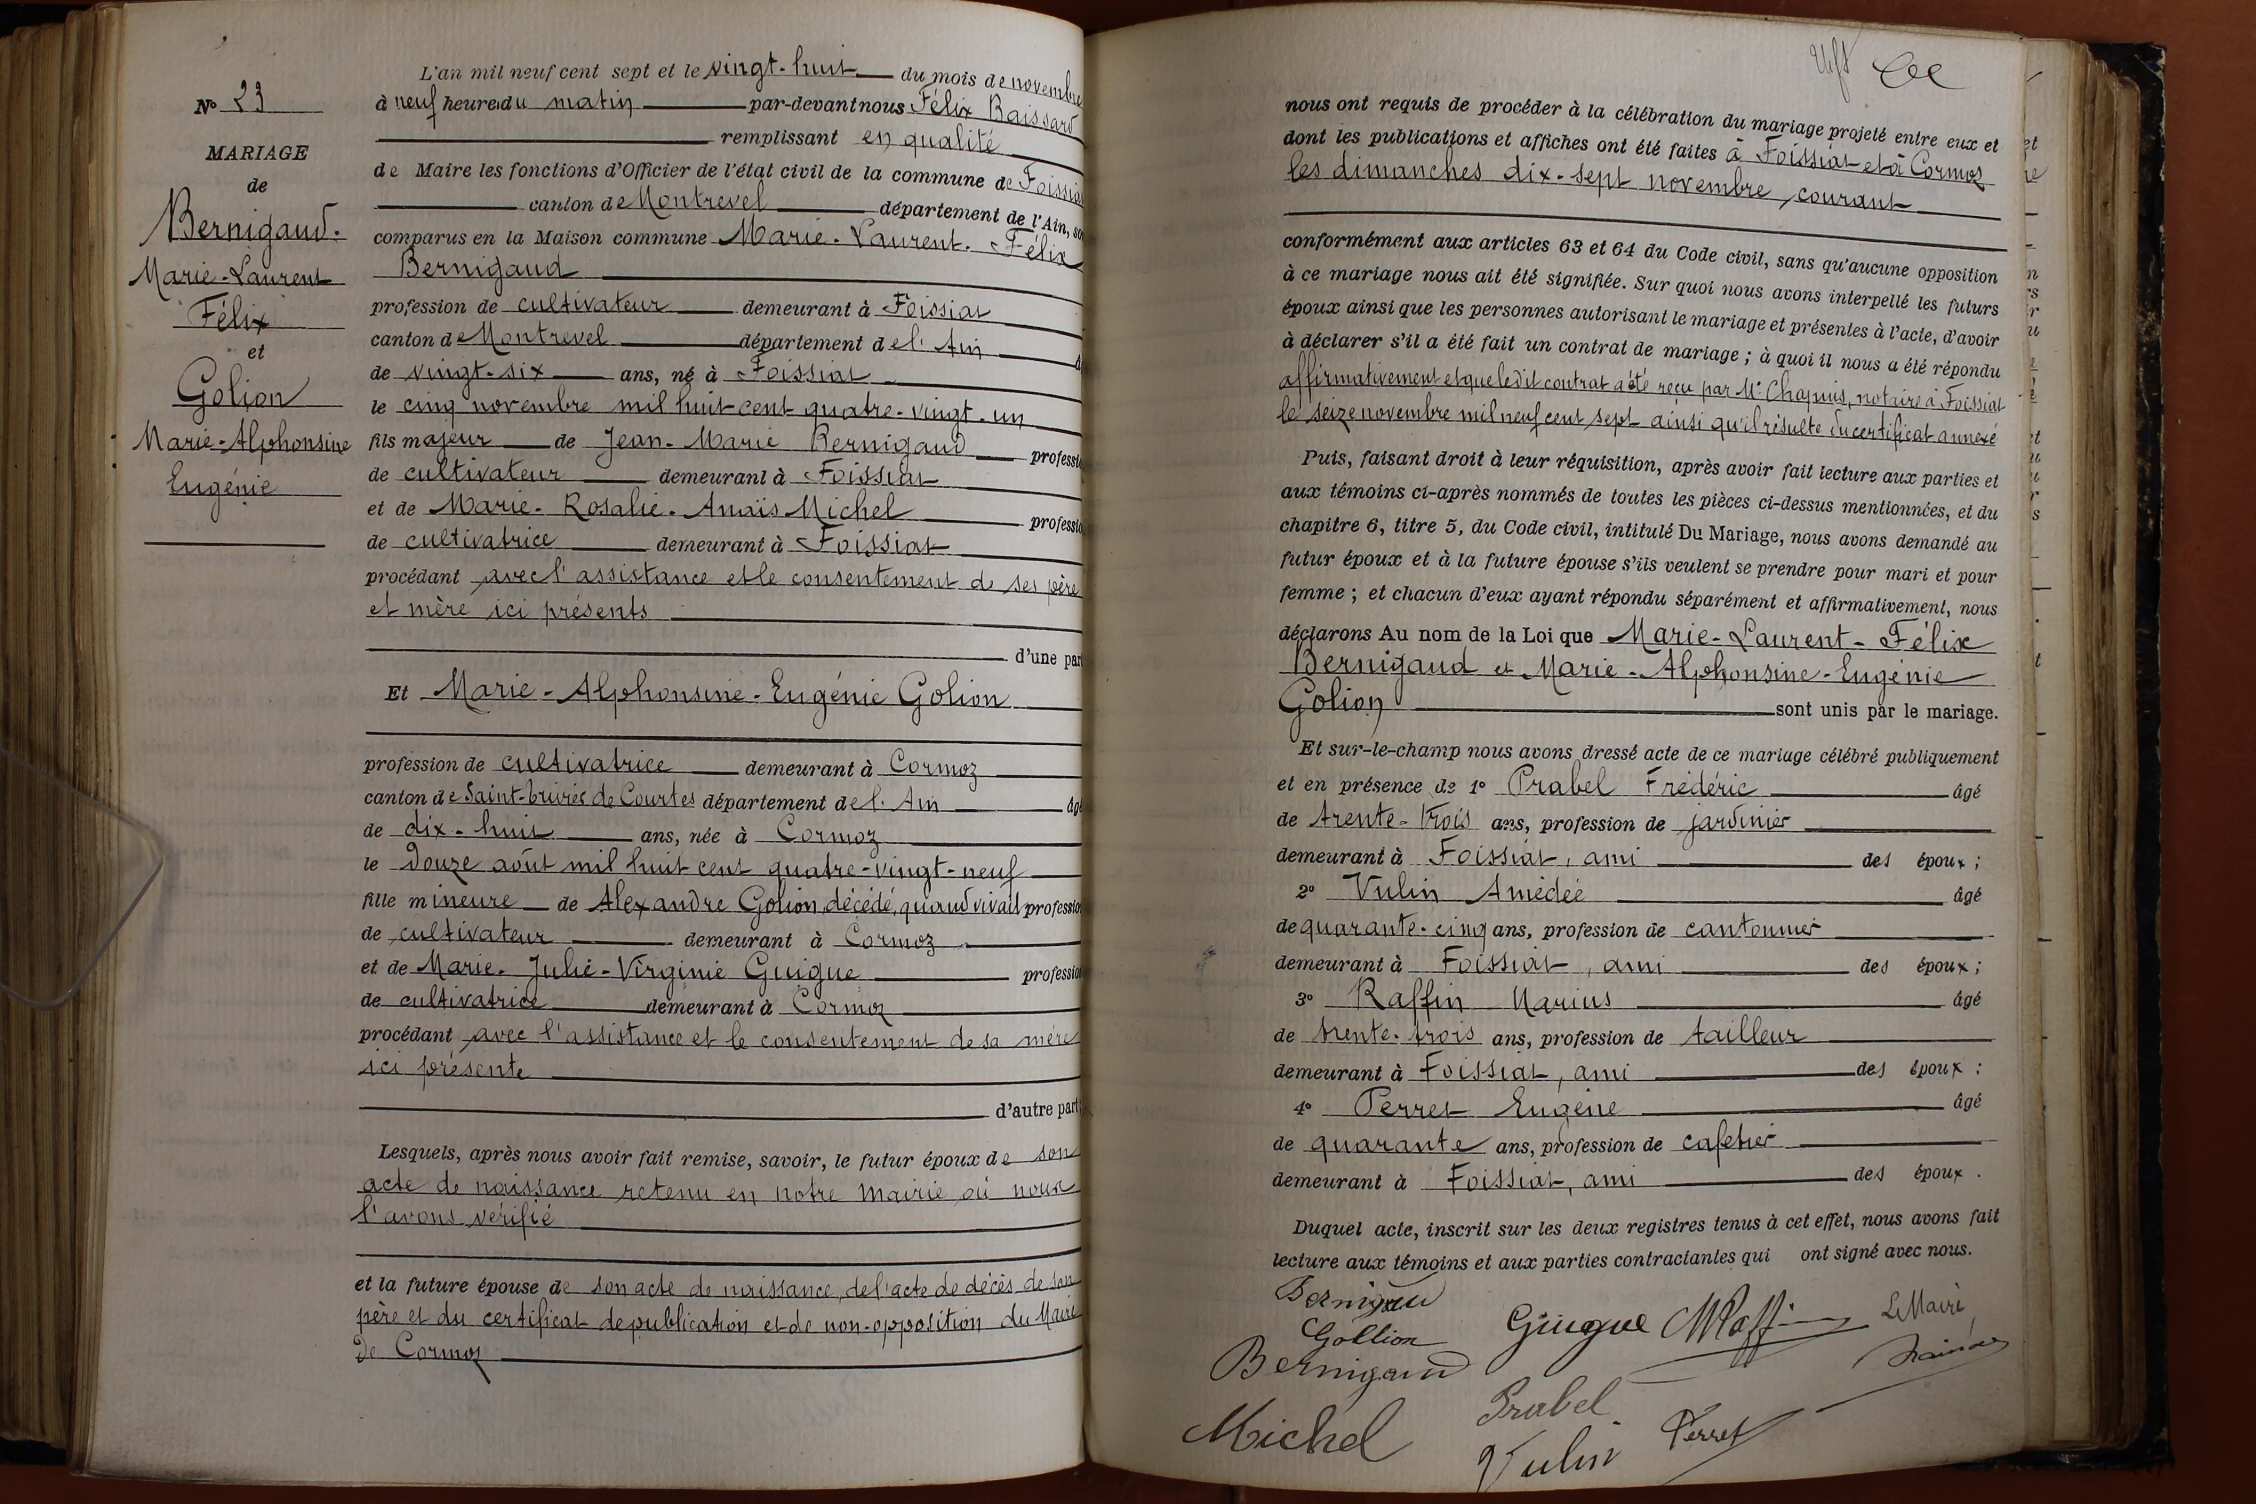 N° 23
MARIAGE
de
Bernigaud.
Marie-Laurent
Félix
et
Golion
Marie-Alphonsine
Eugénie
L'an mil neuf cent sept et le vingt-huit du mois de novembre
à neuf heures du matin par-devant nous Félix Baissard
remplissant en qualité
de Maire les fonctions d'Officier de l'état civil de la commune de Foissiat
canton de Montrevel département de l'Ain, so
comparus en la Maison commune Marie-Laurent-Félix
Bernigaud
profession de cultivateur demeurant à Foissiat
canton de Montrevel département de l'Ain â
de vingt-six ans, né à Foissiat
le cinq novembre mil huit cent quatre-vingt-un
fils majeur de Jean-Marie Bernigaud professi
de cultivateur demeurant à Foissiat
et de Marie-Rosalie-Anaïs Michel professi
de cultivatrice demeurant à Foissiat
procédant avec l'assistance et le consentement de ses père
et mère ici présents
d'une part
Et Marie-Alphonsine-Eugénie Golion
profession de cultivatrice demeurant à Cormoz
canton de Saint-Trivier de Courtes département de l'Ain âgé
de dix-huit ans, née à Cormoz
le douze août mil huit cent quatre-vingt-neuf
fille mineure de Alexandre Golion, décédé, quand vivait profession
de cultivateur demeurant à Cormoz
et de Marie-Julie-Virginie Guigue profession
de cultivatrice demeurant à Cormoz
procédant avec l'assistance et le consentement de sa mère
ici présente
d'autre part;
Lesquels, après nous avoir fait remise, savoir, le futur époux de son
acte de naissance retenu en notre mairie où nous
l'avons vérifié
et la future épouse de son acte de naissance, de l'acte de décès de son
père et du certificat de publication et de non-opposition du Maire
de Cormoz
nous ont requis de procéder à la célébration du mariage projeté entre eux et
dont les publications et affiches ont été faites à Foissiat et à Cormoz
les dimanches dix-sept novembre, courant
conformément aux articles 63 et 64 du Code civil, sans qu'aucune opposition
à ce mariage nous ait été signifiée. Sur quoi nous avons interpellé les futurs
époux ainsi que les personnes autorisant le mariage et présentes à l'acte, d'avoir
à déclarer s'il a été fait un contrat de mariage ; à quoi il nous a été répondu
affirmativement et que ledit contrat a été reçu par Me Chapuis, notaire à Foissiat
le seize novembre mil neuf cent sept ainsi qu'il résulte du certificat annexé
Puis, faisant droit à leur réquisition, après avoir fait lecture aux parties et
aux témoins ci-après nommés de toutes les pièces ci-dessus mentionnées, et du
chapitre 6, titre 5, du Code civil, intitulé Du Mariage, nous avons demandé au
futur époux et à la future épouse s'ils veulent se prendre pour mari et pour
femme ; et chacun d'eux ayant répondu séparément et affirmativement, nous
déclarons Au nom de la Loi que Marie-Laurent-Félix
Bernigaud et Marie-Alphonsine-Eugénie
Golion sont unis par le mariage.
Et sur-le-champ nous avons dressé acte de ce mariage célébré publiquement
et en présence de 1° Prabel Frédéric âgé
de trente-trois ans, profession de jardinier
demeurant à Foissiat, ami des époux ;
2° Vulin Amédée âgé
de quarante-cinq ans, profession de cantonnier
demeurant à Foissiat, ami des époux ;
3° Raffin Marius âgé
de trente-trois ans, profession de tailleur
demeurant à Foissiat, ami des époux ;
4° Perret Eugène âgé
de quarante ans, profession de cafetier
demeurant à Foissiat, ami des époux.
Duquel acte, inscrit sur les deux registres tenus à cet effet, nous avons fait
lecture aux témoins et aux parties contractantes qui ont signé avec nous.
Bernigau
Gollion
Guigue MRaffin Le Maire,
Bernigaud
Prabel
Michel
Vulin Perret